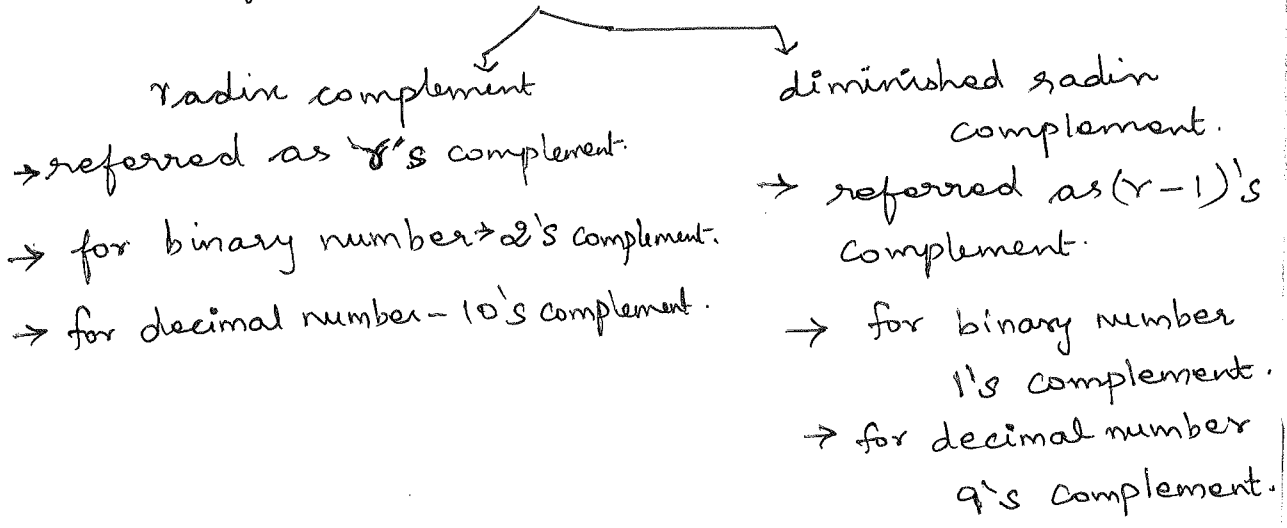 radix complement
→ referred as r's complement.
→ for binary number → 2's complement.
→ for decimal number - 10's complement.
diminished radix
complement.
→ referred as (r-1)'s
complement.
→ for binary number
1's complement.
→ for decimal number
9's complement.